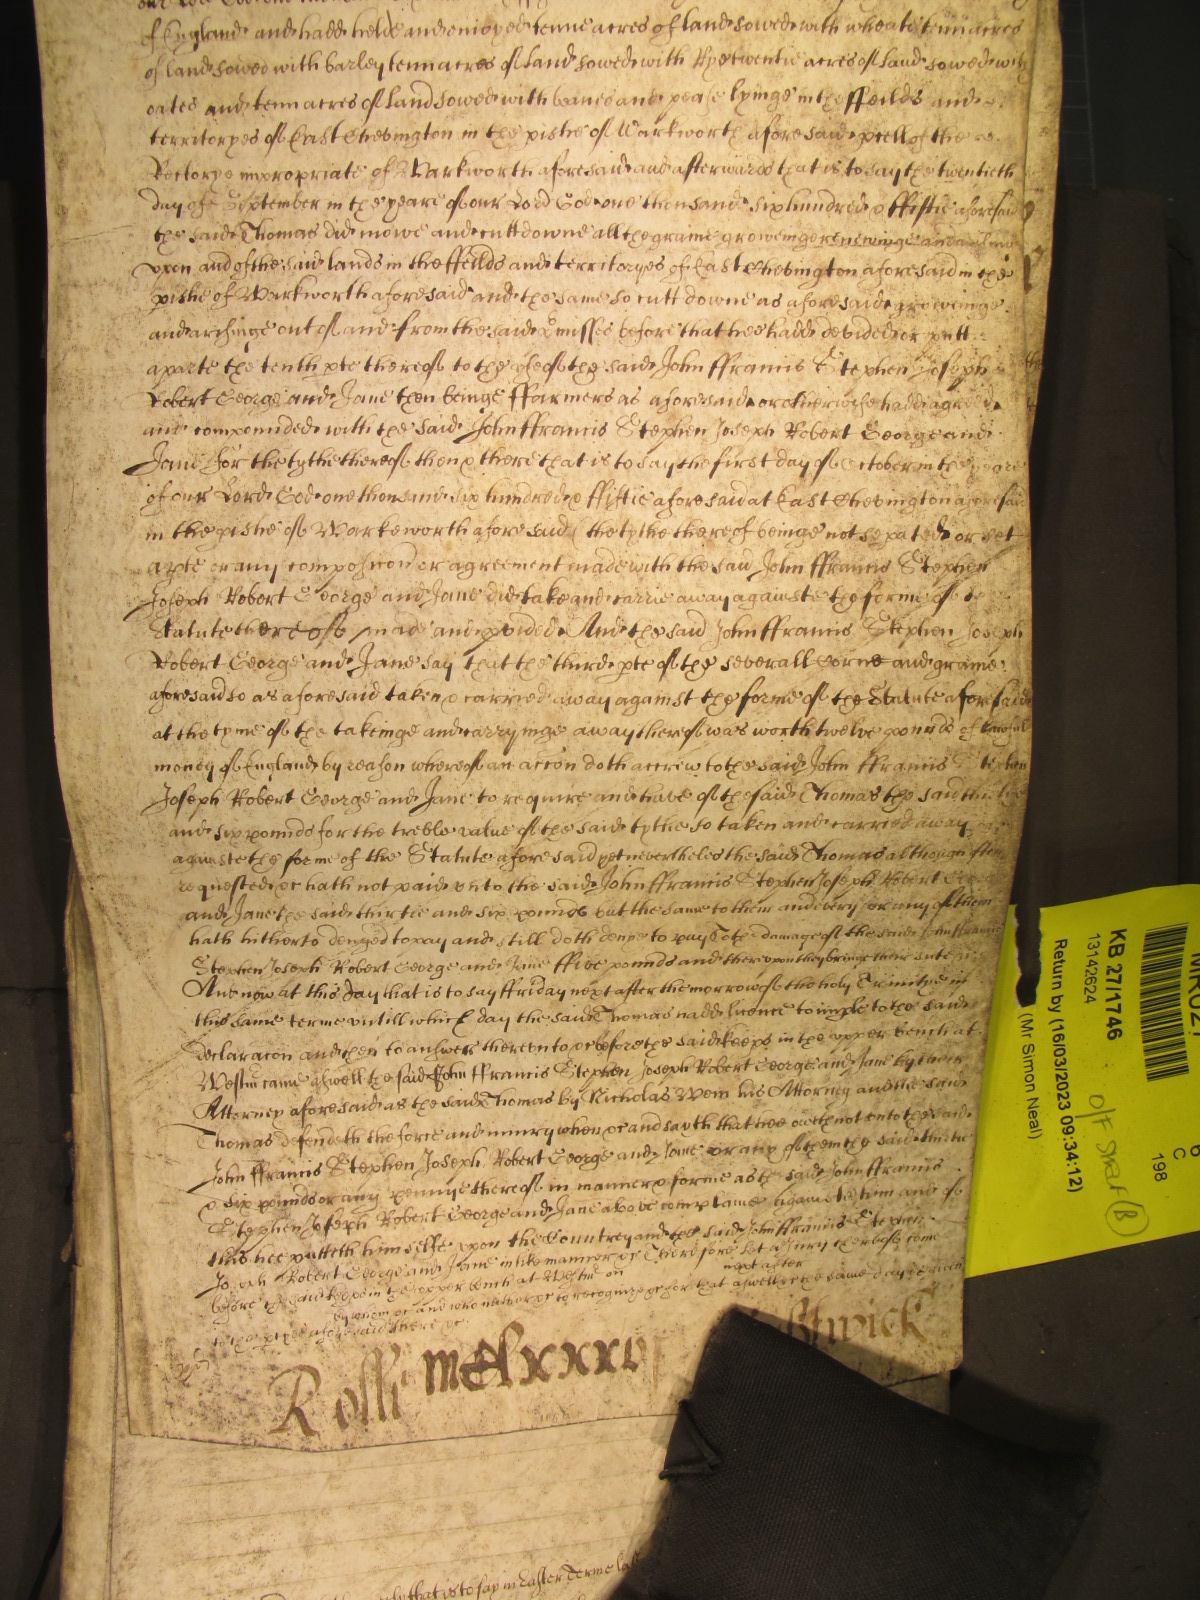 of England and hadd helde and enioyed tenne acres of land sowed with wheate tenn acres
of land sowed with barley tenn acres of land sowed with Rye twentie acres of land sowed with
oates and tenn acres of land sowed with beanes and pease lyinge in the ffeilds and
territoryes of East Chevington in the pishe of Warkworth aforesaid pcell of the
Rectorye impropriate of Warkworth aforesaid and afterwards that is to say the twentieth
day of September in the yeare of our Lord God one thousand six hundred & ffiftie aforesaid
the said Thomas did mowe and cutt downe all the graine groweinge renewinge and
vpon and of the said lands in the ffeilds and territoryes of East Chevington aforesaid in the
pishe of Warkworth aforesaid and the same so cutt downe as aforesaid groweinge
and ariseinge out of and from the said pmisses before that hee hadd devided or putt
aparte the tenth pte thereof to the vse of the said John ffrancis Stephen Joseph
Robert George and Jane then beinge ffarmers as aforesaid or otherwise hadd agreed
and compounded with the said John ffrancis Stephen Joseph Robert George and
Jane for the tythe thereof then & there that is to say the first day of October in the yeare
of our Lord God one thousand six hundred & ffiftie aforesaid at East Chevington aforesaid
in the pishe of Warkeworth aforesaid (the tythe thereof beinge not sepated or set
apte or any composicon or agreement made with the said John ffrancis Stephen
Joseph Robert George and Jane did take and carrie away againste the forme of
Statute thereof made and pvided And the said John ffrancis Stephen Joseph
Robert George and Jane say that the third pte of the severall Corne and graine
aforesaid so as aforesaid taken & carried away against the forme of the Statute aforesaid
at the tyme of the takeinge and carryinge away thereof was worth twelve pounds of lawfull
money of England by reason whereof an accon doth accrew to the said John ffrancis Stephen
Joseph Robert George and Jane to require and have of the said Thomas the said thirtie
and six pounds for the treble value of the said tythe so taken and carried away
againste the forme of the Statute aforesaid yet nevertheles the said Thomas although often
requested &c hath not paid vnto the said John ffrancis Stephen Joseph Robert George
and Jane the said thirtie and six pounds but the same to them and every or any of them
hath hitherto denyed to pay and still doth denye to pay To the damage of the said John ffrancis
Stephen Joseph Robert George and Jane ffive pounds and therevpon they bringe their suite
And now at this day that is to say ffriday next after the morrow of the holy Trinitye in
this same terme vntill which day the said Thomas hadd licence to imple to the said
declaracon and then to answere therevnto &c before the said keeps in the vpper bench at
Westm came aswell the said John ffrancis Stephen Joseph Robert George and Jane by their
Attorney aforesaid as the said Thomas by Nicholas Wein his Attorney and the said
Thomas defendeth the force and iniury when &c and sayth that hee oweth not vnto the said
John ffrancis Stephen Joseph Robert George and Jane or any of them the said thirtie
& six pounds or any pennye thereof in manner & forme as the said John ffrancis
Stephen Joseph Robert George and Jane above complaine against him and of
this hee putteth himselfe vpon the Countrey and the said John ffrancis Stephen
Joseph Robert George and Jane in like manner &c Therefore let a Jury thereof come
before the said keeps in the vpper bench at Westm on next after
by whom &c and who neither &c to recognize &c for that aswell &c the same day is given
to the ptyes aforesaid there &c
Rolls
that is to say in Easter Terme last
KB 27/1746
13142624
Return by (16/03/2023 09:34:12)
(Mr Simon Neal)
C
198